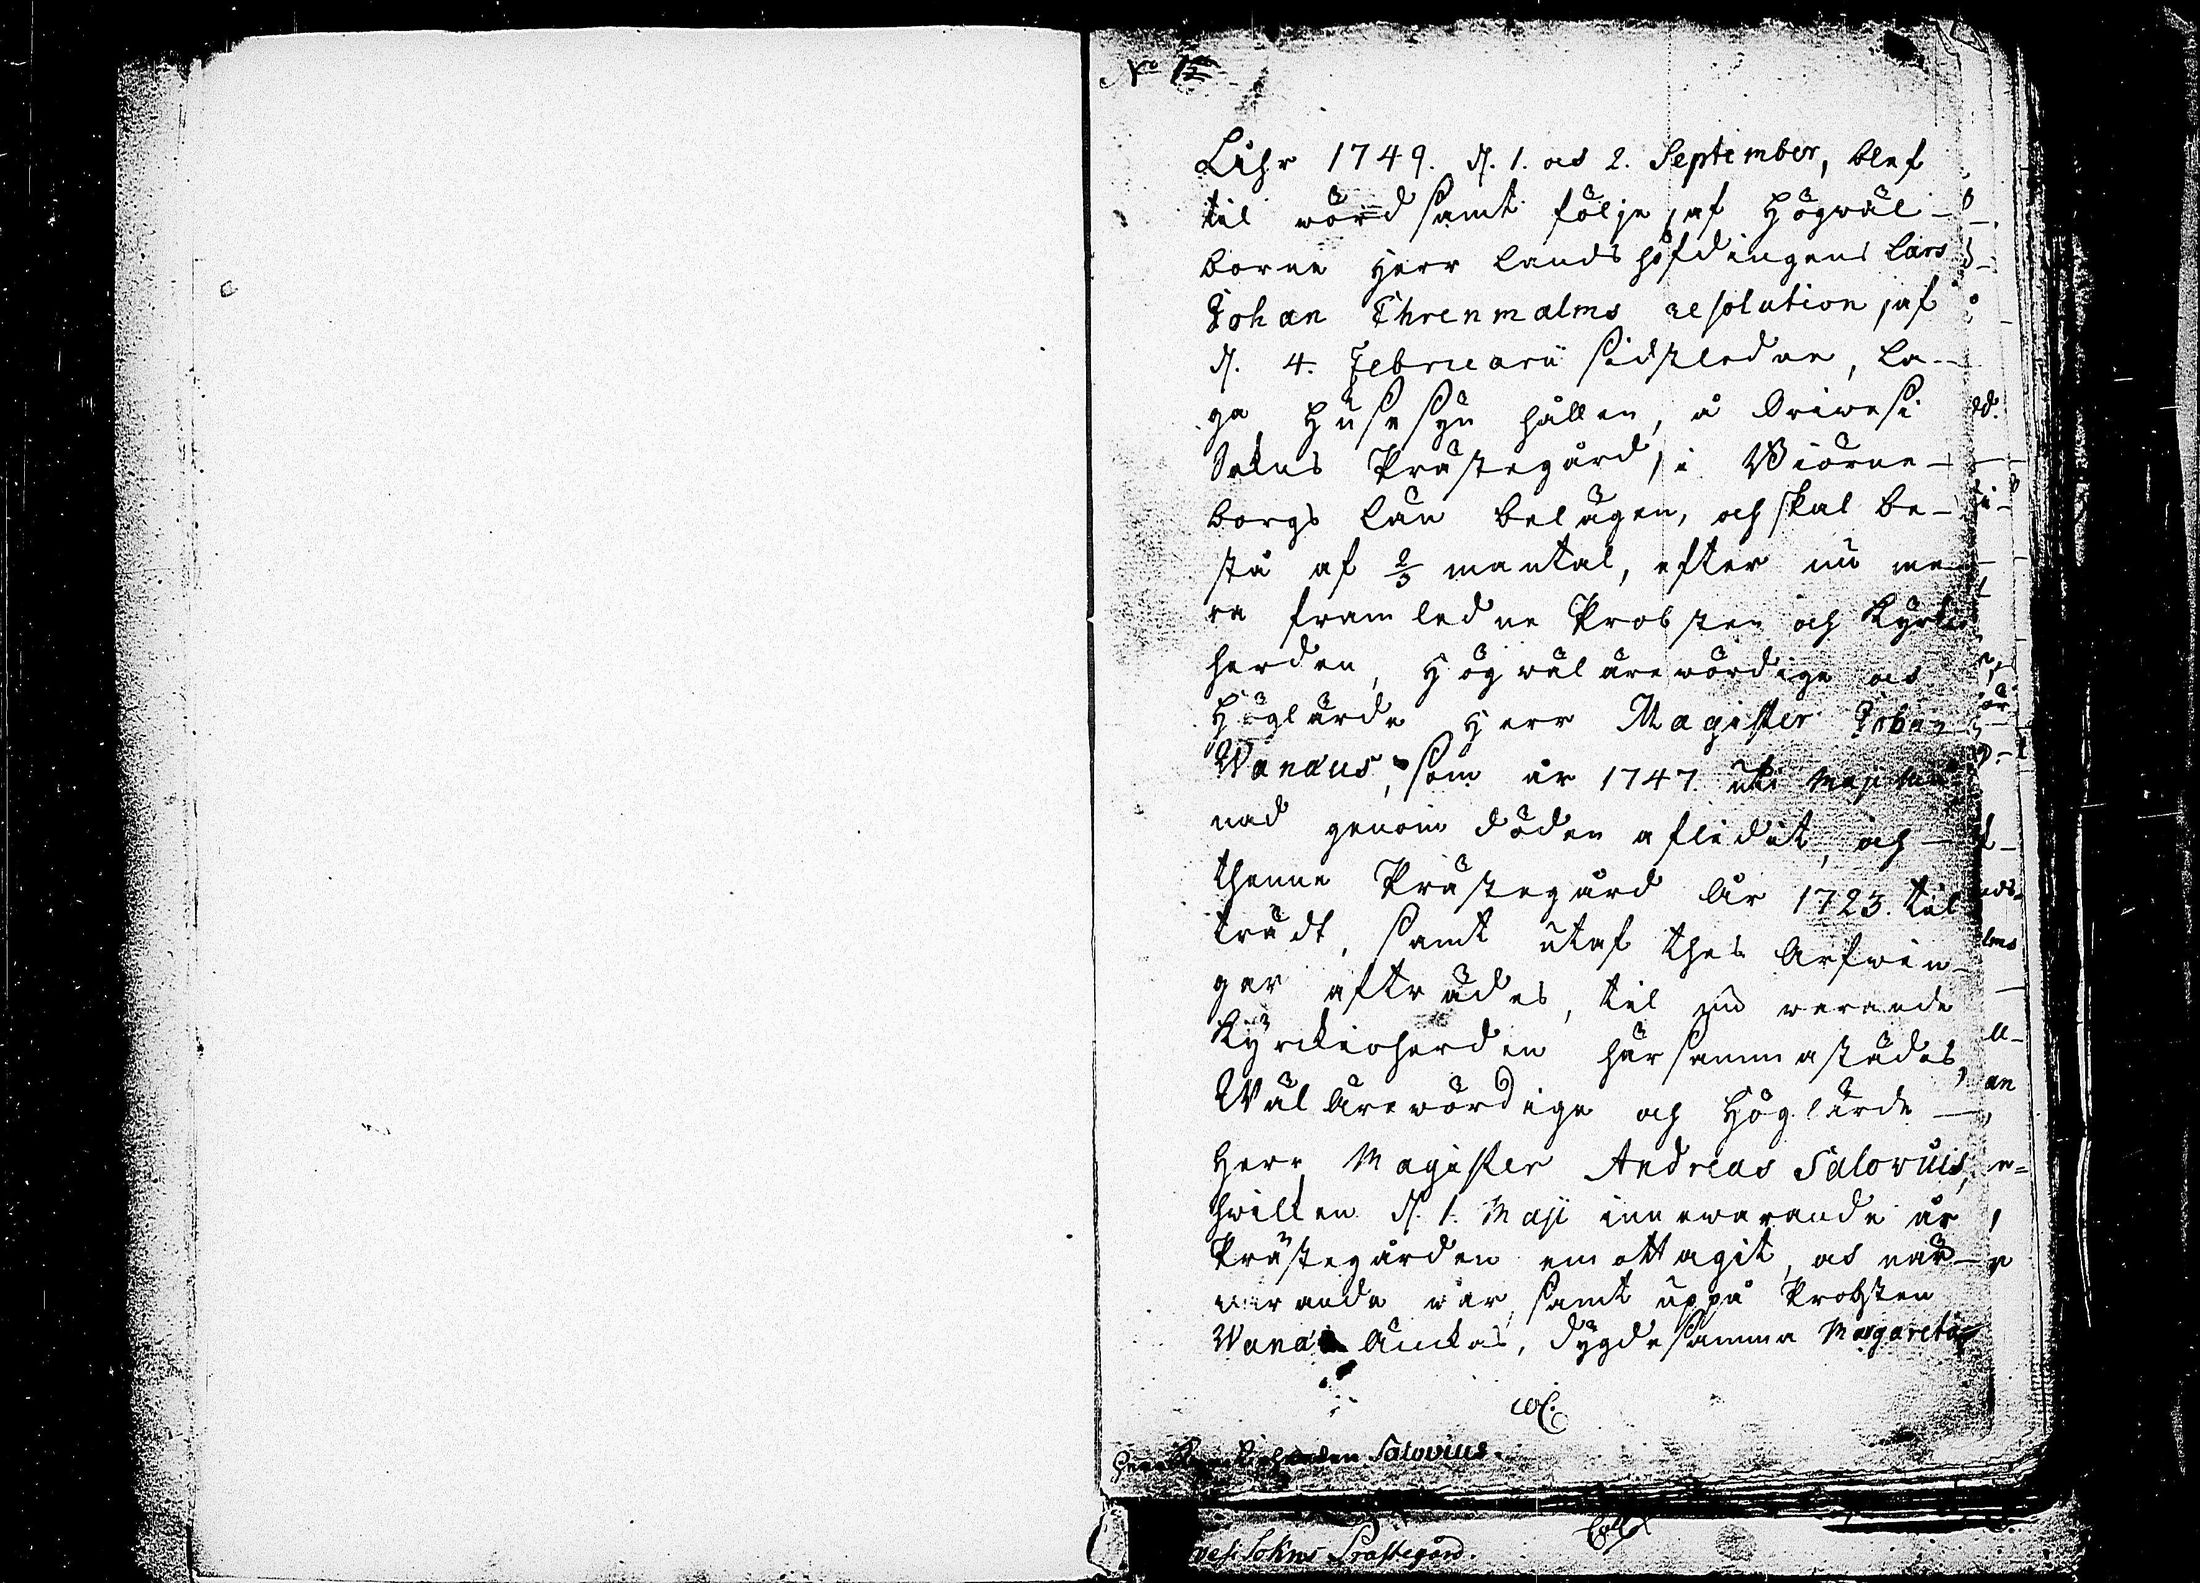 No 12
Åhr 1749. d. 1. as 2. September, blef
til wördsamt följe af Högwäl-
borne Herr Landshöfdingens Lars
Johan Ehrenmalms resolution, af
d. 4. Februarii sidstledne, La-
ga Husesyn hållen, å Oriwesi
Sokns Prästegård, i Biörne-
borgs Län belägen, och skal be-
stå af 2/3 mantal, efter nu me-
ra framledne Probsten och Kyrkio
herden, Högwälärewördige as
Höglärde Herr Magister Johan
Wanæus, som år 1747. uti Maji må
nad genom döden aflidit, och
thenne Prästegård År 1723. til
trädt, samt utaf thes Arfwin-
gar afträdes, til nu warande
Kyrckioherden härsammastädes,
Wäl Ärewördige och Höglärde
Herr Magister Andreas Salovius,
hwilken d. 1. Maji innewarande år
Prästegården emottagit, as när-
warande war, samt uppå Probsten
Wanæi Änckas, dygdesamma Margareta
Herr Kyrckioherden Salovius.
vesi Sokns Prästegård.